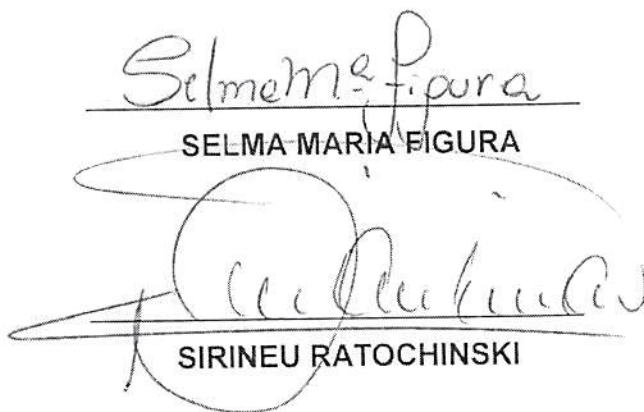 Selma Mª Figura
SELMA MARIA FIGURA
SIRINEU RATOCHINSKI